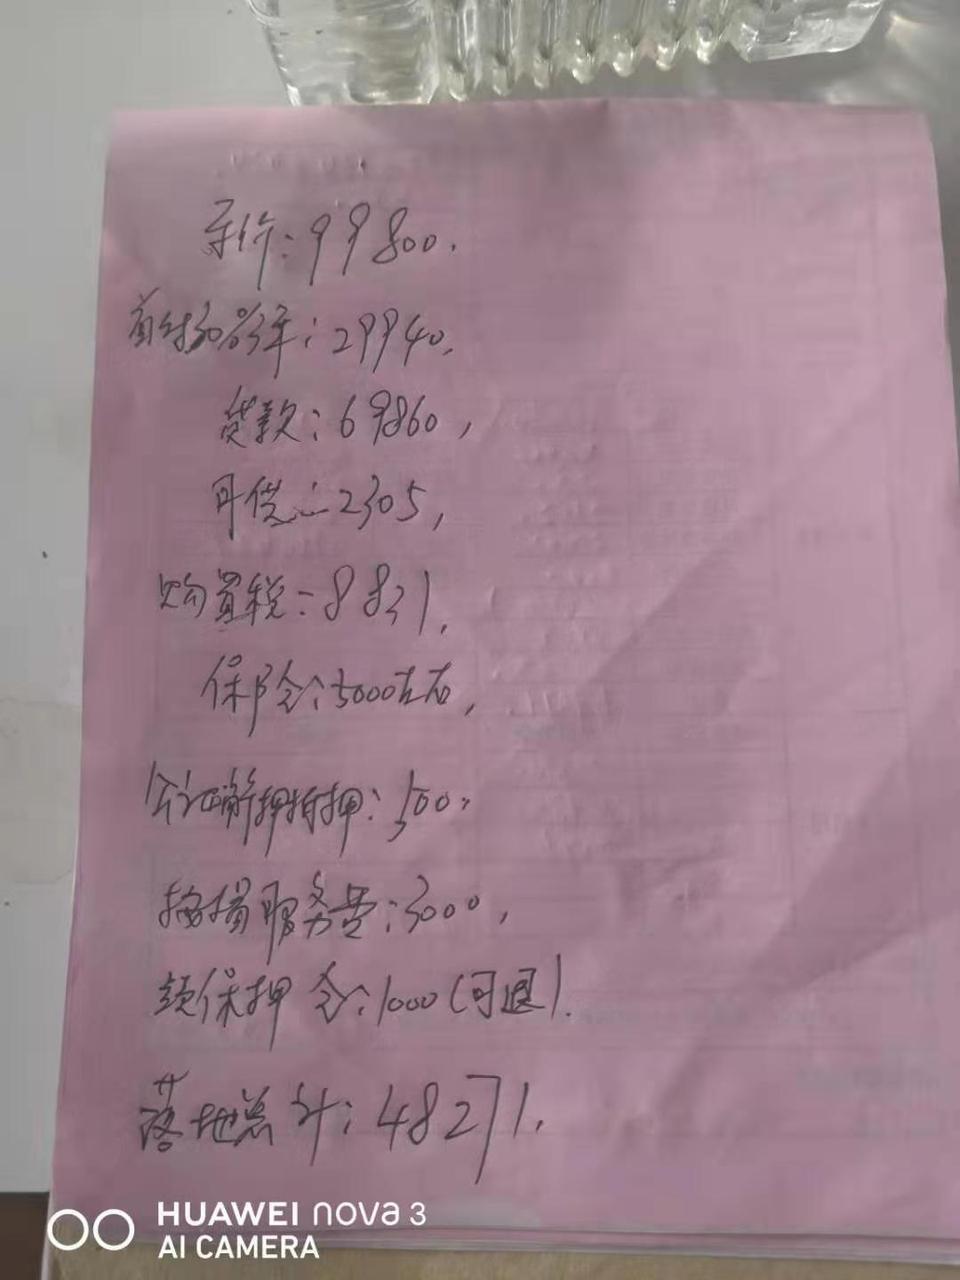 车价:99800.
首付30%3年:29940.
贷款:69860,
月供:2305,
购置税:8831.
保险:5000左右,
公证解押抵押:500,
按揭服务费:3000,
续保押金:1000(可退).
落地总计:48271.
HUAWEI nova 3
AI CAMERA